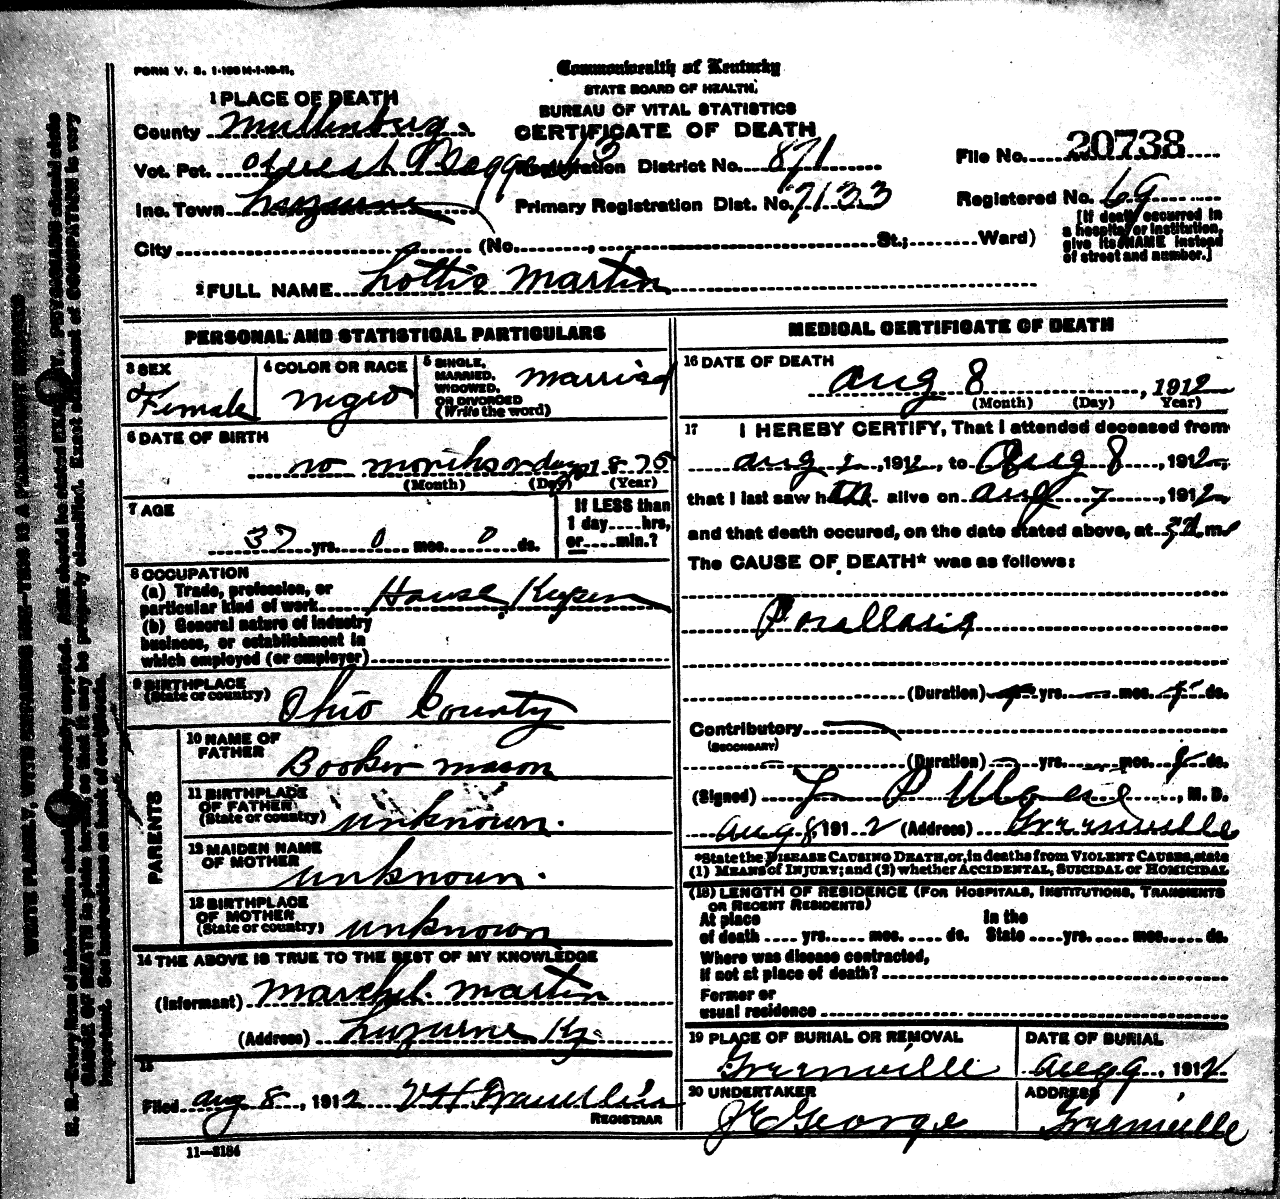 FORM V. S. 1-100 M-1-10-11.
Commonwealth of Kentucky
STATE BOARD OF HEALTH,
BUREAU OF VITAL STATISTICS
CERTIFICATE OF DEATH
1 PLACE OF DEATH
County
Vot. Pct. Registration District No. 871
Inc. Town Luzurne Primary Registration Dist. No. 7133
City (No. , St.; Ward)
File No. 20738
Registered No. 69
[If death occurred in
a hospital or institution,
give its NAME instead
of street and number.]
2 FULL NAME Lottie Martin
PERSONAL AND STATISTICAL PARTICULARS
3 SEX
Female
4 COLOR OR RACE
negro
5 SINGLE,
MARRIED,
WIDOWED,
OR DIVORCED
(Write the word)
married
6 DATE OF BIRTH
no months or days 1875
(Month) (Day) (Year)
7 AGE
37 yrs. 0 mos. 0 ds.
If LESS than
1 day hrs,
or min.?
8 OCCUPATION
(a) Trade, profession, or
particular kind of work House
(b) General nature of industry
business, or establishment in
which employed (or employer)
9 BIRTHPLACE
(State or country) Ohio County
PARENTS
10 NAME OF
FATHER Booker mason
11 BIRTHPLACE
OF FATHER
(State or country) unknown.
12 MAIDEN NAME
OF MOTHER unknown.
13 BIRTHPLACE
OF MOTHER
(State or country) unknown
14 THE ABOVE IS TRUE TO THE BEST OF MY KNOWLEDGE
(Informant) martin
(Address) Luzurne Ky.
15
Filed aug 8, 1912
REGISTRAR
11—2184
MEDICAL CERTIFICATE OF DEATH
16 DATE OF DEATH
aug 8, 1912
(Month) (Day) Year)
17 I HEREBY CERTIFY, That I attended deceased from
aug 2, 1912, to Aug 8, 1912,
that I last saw h alive on aug 7, 1912
and that death occured, on the date stated above, at m
The CAUSE OF DEATH* was as follows:
(Duration) yrs. mos. ds.
Contributory
(SECONDARY)
(Duration) yrs. mos. ds.
(Signed) , M. D.
aug 8, 1912 (Address) Greenville
*State the DISEASE CAUSING DEATH, or, in deaths from VIOLENT CAUSES, state
(1) MEANS of INJURY; and (2) whether ACCIDENTAL, SUICIDAL or HOMICIDAL
(18) LENGTH OF RESIDENCE (FOR HOSPITALS, INSTITUTIONS, TRANSIENTS
OR RECENT RESIDENTS)
At place In the
of death yrs. mos. ds. State yrs. mos. ds.
Where was disease contracted,
if not at place of death?
Former or
usual residence
19 PLACE OF BURIAL OR REMOVAL
Greenville
DATE OF BURIAL
aug 9, 1912
20 UNDERTAKER
J E George
ADDRESS
Greenville